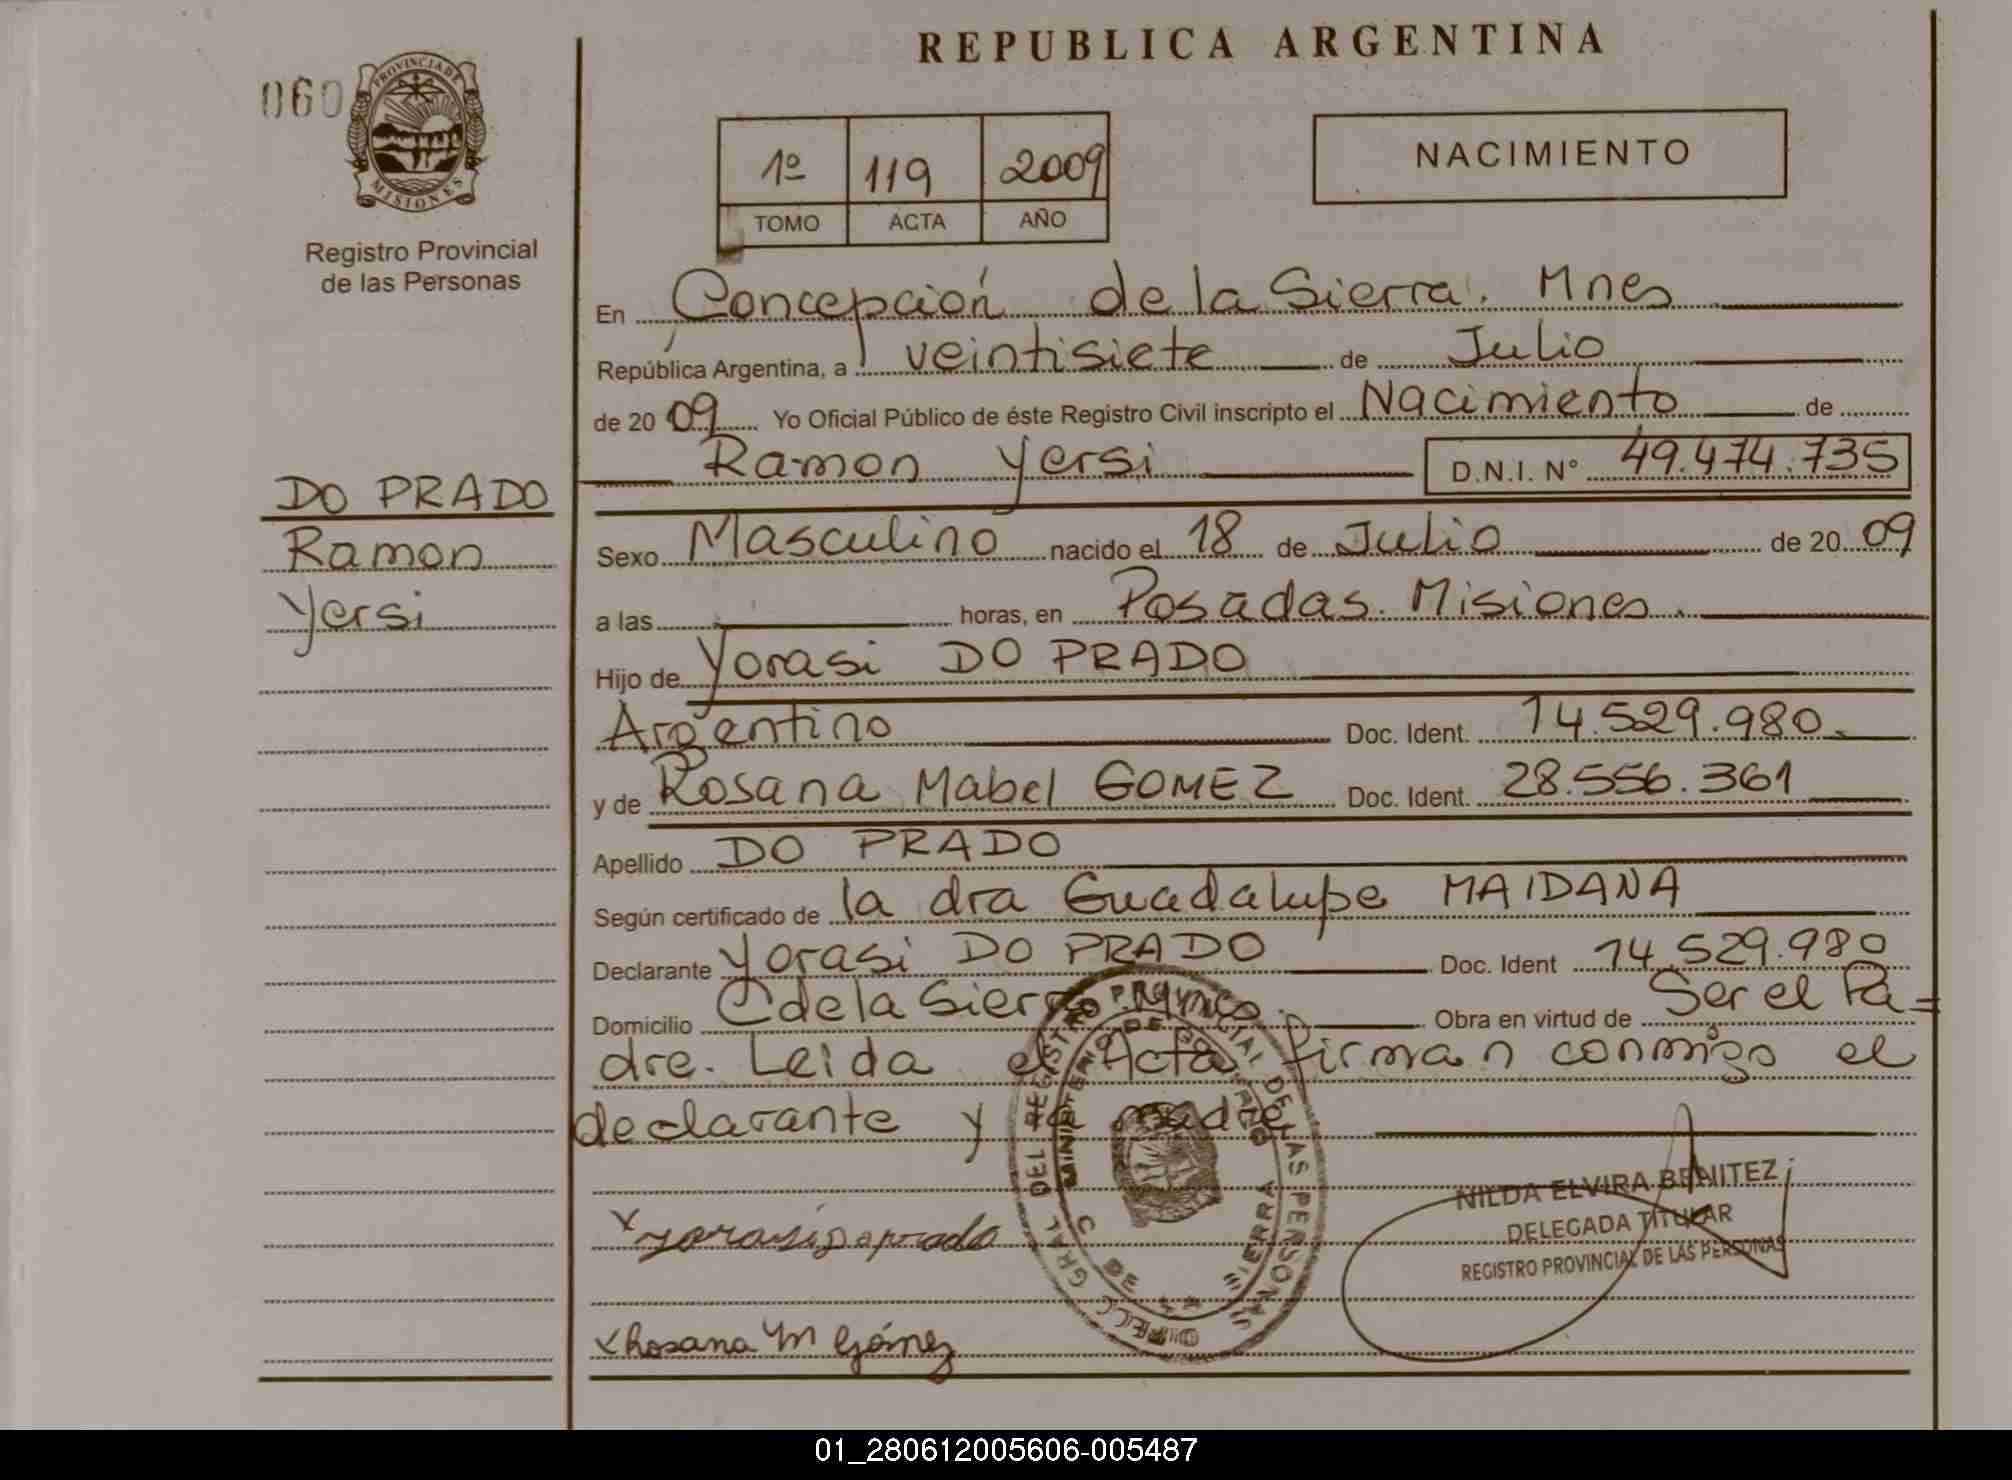 REPUBLICA ARGENTINA
060
PROVINCIA DE
MISIONES
Registro Provincial
de las Personas
1º 119 2009
TOMO ACTA AÑO
NACIMIENTO
En Concepción de la Sierra. Mnes
República Argentina, a veintisiete de Julio
de 2009 Yo Oficial Público de éste Registro Civil inscripto el Nacimiento de
Ramon Yersi D.N.I. Nº 49.474.735
DO PRADO
Ramon
Yersi
Sexo Masculino nacido el 18 de Julio de 2009
a las horas, en Posadas. Misiones.
Hijo de Yorasi DO PRADO
Argentino Doc. Ident. 14.529.980.
y de Rosana Mabel GOMEZ Doc. Ident. 28.556.361
Apellido DO PRADO
Según certificado de la dra Guadalupe MAIDANA
Declarante Yorasi DO PRADO Doc. Ident 14.529.980
Domicilio C de la Sierra Mnes. Obra en virtud de Ser el Pa=
dre. Leida el Acta firman conmigo el
declarante y la madre
DIRECC GRAL DEL REGISTRO PROVINCIAL DE LAS PERSONAS
MINISTERIO DE GOBIERNO
C DE SIERRA
NILDA ELVIRA BENITEZ
DELEGADA TITULAR
REGISTRO PROVINCIAL DE LAS PERSONAS
x Rosana M Gómez
01_280612005606-005487